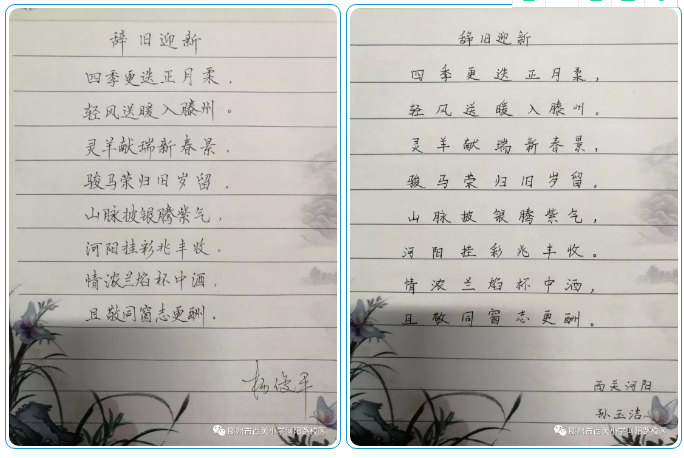 辞旧迎新
四季更迭正月柔，
轻风送暖入滕州。
灵羊献瑞新春景，
骏马荣归旧岁留。
山脉披银腾紫气，
河阳挂彩兆丰收。
情浓兰焰杯中酒，
且敬同窗志更酬。
辞旧迎新
四季更迭正月柔，
轻风送暖入滕州。
灵羊献瑞新春景，
骏马荣归旧岁留。
山脉披银腾紫气，
河阳挂彩兆丰收。
情浓兰焰杯中酒，
且敬同窗志更酬。
西关河阳
孙玉洁